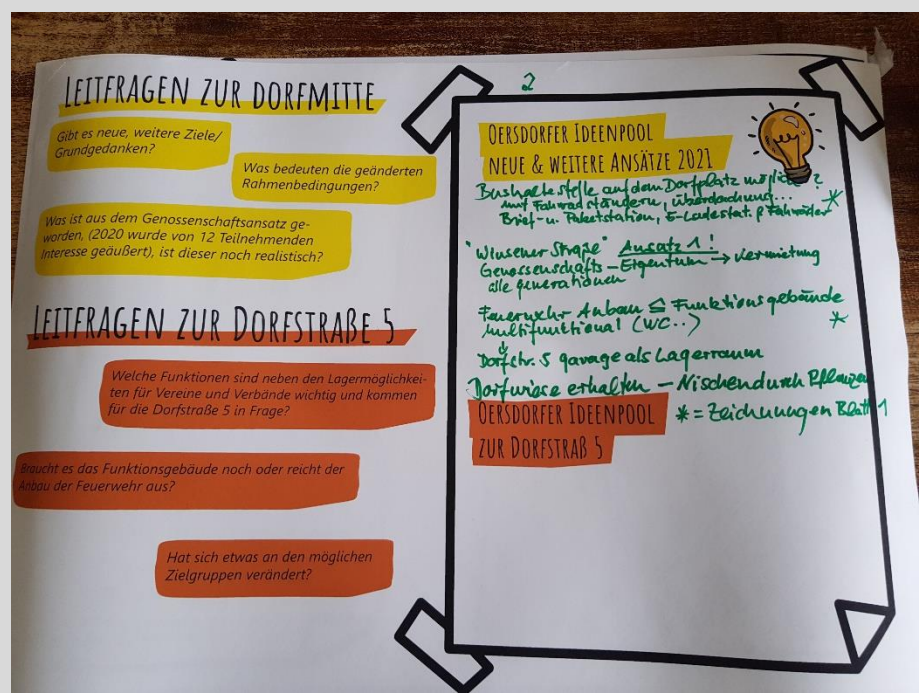 LEITFRAGEN ZUR DORFMITTE
Gibt es neue, weitere Ziele/
Grundgedanken?
Was bedeuten die geänderten
Rahmenbedingungen?
Was ist aus dem Genossenschaftsansatz ge-
worden, (2020 wurde von 12 Teilnehmenden
Interesse geäußert), ist dieser noch realistisch?
LEITFRAGEN ZUR DORFSTRAßE 5
Welche Funktionen sind neben den Lagermöglichkei-
ten für Vereine und Verbände wichtig und kommen
für die Dorfstraße 5 in Frage?
Braucht es das Funktionsgebäude noch oder reicht der
Anbau der Feuerwehr aus?
Hat sich etwas an den möglichen
Zielgruppen verändert?
2
OERSDORFER IDEENPOOL
NEUE & WEITERE ANSÄTZE 2021
Bushaltestelle auf dem Dorfplatz möglich ?
mit Fahrradständern, Überdachung... *
Brief- u. Paketstation, E-Ladestat. f Fahrräder
"Winsener Straße" Ansatz 1!
Genossenschafts-Eigentum → Vermietung
alle Generationen
Feuerwehr Anbau ≙ Funktionsgebäude
multifunktional (WC..) *
Dorfstr. 5 garage als Lagerraum
Dorfwiese erhalten – Nischen durch Pflanzen
OERSDORFER IDEENPOOL
ZUR DORFSTRAß 5
* = Zeichnungen Blatt 1